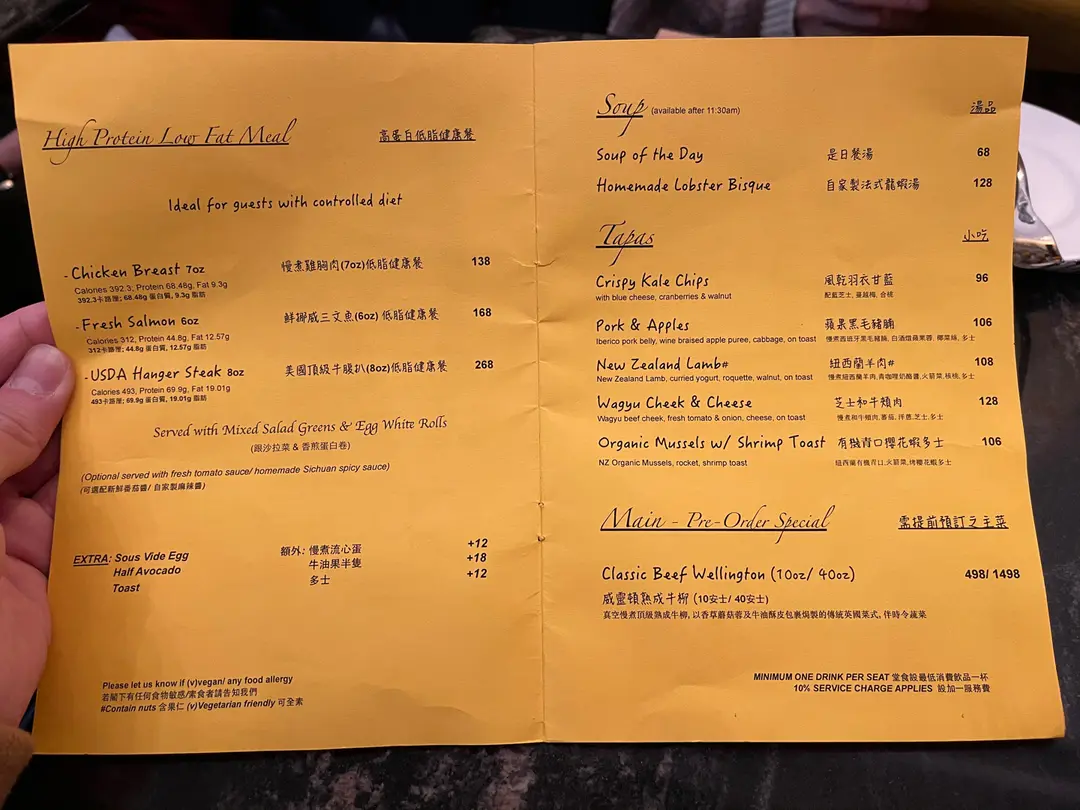 High Protein Low Fat Meal 高蛋白低脂健康餐
Ideal for guests with controlled diet
-Chicken Breast 7oz 慢煮雞胸肉(7oz)低脂健康餐 138
Calories 392.3, Protein 68.48g, Fat 9.3g
392.3卡路里; 68.48g 蛋白質, 9.3g 脂肪
-Fresh Salmon 6oz 鮮挪威三文魚(6oz) 低脂健康餐 168
Calories 312, Protein 44.8g, Fat 12.57g
312卡路里; 44.8g 蛋白質, 12.57g 脂肪
-USDA Hanger Steak 8oz 美國頂級牛腹扒(8oz)低脂健康餐 268
Calories 493, Protein 69.9g, Fat 19.01g
493卡路里; 69.9g 蛋白質, 19.01g 脂肪
Served with Mixed Salad Greens & Egg White Rolls
(跟沙拉菜 & 香煎蛋白卷)
(Optional served with fresh tomato sauce/ homemade Sichuan spicy sauce)
(可選配新鮮番茄醬/ 自家製麻辣醬)
EXTRA: Sous Vide Egg 額外: 慢煮流心蛋 +12
Half Avocado 牛油果半隻 +18
Toast 多士 +12
Please let us know if (v)vegan/ any food allergy
若閣下有任何食物敏感/素食者請告知我們
#Contain nuts 含果仁 (v)Vegetarian friendly 可全素
Soup (available after 11:30am) 湯品
Soup of the Day 是日餐湯 68
Homemade Lobster Bisque 自家製法式龍蝦湯 128
Tapas 小吃
Crispy Kale Chips 風乾羽衣甘藍 96
with blue cheese, cranberries & walnut 配藍芝士, 蔓越梅, 合桃
Pork & Apples 蘋果黑毛豬腩 106
Iberico pork belly, wine braised apple puree, cabbage, on toast 慢煮西班牙黑毛豬腩, 白酒燴蘋果蓉, 椰菜絲, 多士
New Zealand Lamb# 紐西蘭羊肉# 108
New Zealand Lamb, curried yogurt, roquette, walnut, on toast 慢煮紐西蘭羊肉, 青咖哩奶酪醬, 火箭菜, 核桃, 多士
Wagyu Cheek & Cheese 芝士和牛頰肉 128
Wagyu beef cheek, fresh tomato & onion, cheese, on toast 慢煮和牛頰肉, 蕃茄, 洋蔥, 芝士, 多士
Organic Mussels w/ Shrimp Toast 有機青口櫻花蝦多士 106
NZ Organic Mussels, rocket, shrimp toast 紐西蘭有機青口, 火箭菜, 烤櫻花蝦多士
Main - Pre-Order Special 需提前預訂之主菜
Classic Beef Wellington (10oz/ 40oz) 498/ 1498
威靈頓熟成牛柳 (10安士/ 40安士)
真空慢煮頂級熟成牛柳, 以香草蘑菇蓉及牛油酥皮包裹焗製的傳統英國菜式, 伴時令蔬菜
MINIMUM ONE DRINK PER SEAT 堂食設最低消費飲品一杯
10% SERVICE CHARGE APPLIES 設加一服務費